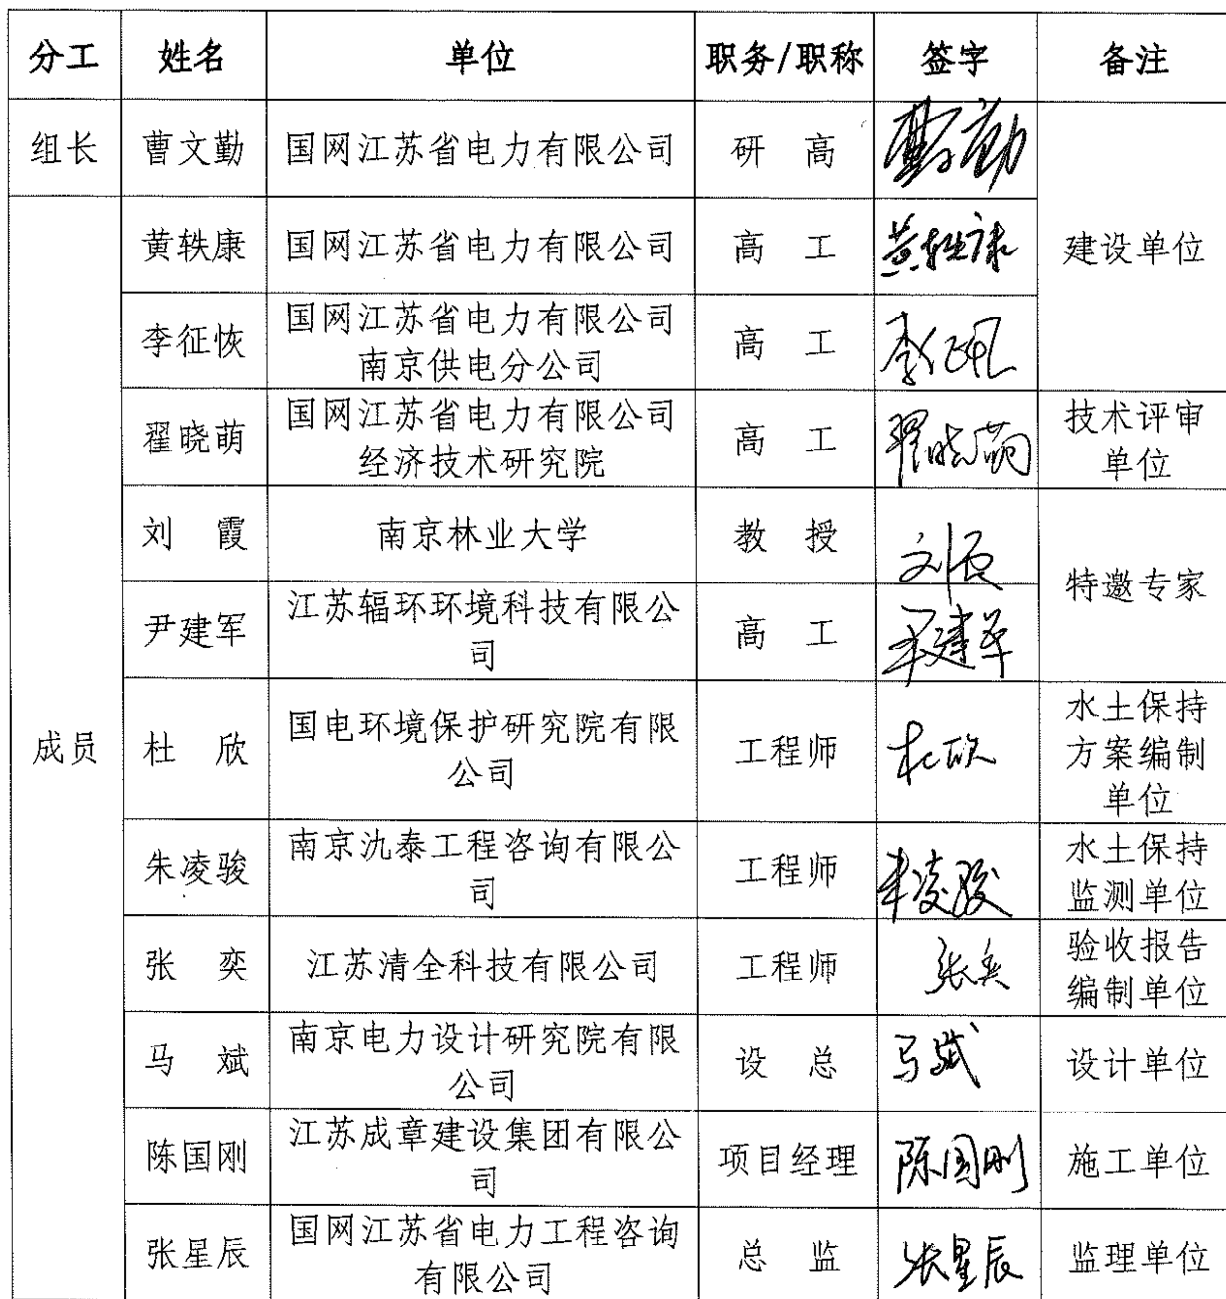 分工 姓名 单位 职务/职称 签字 备注
组长 曹文勤 国网江苏省电力有限公司 研 高 曹文勤
建设单位
成员
黄轶康 国网江苏省电力有限公司 高 工 黄轶康
李征恢 国网江苏省电力有限公司
南京供电分公司
高 工 李征恢
翟晓萌 国网江苏省电力有限公司
经济技术研究院
高 工 翟晓萌
技术评审
单位
刘 霞 南京林业大学 教 授 刘霞
特邀专家
尹建军 江苏辐环环境科技有限公
司
高 工 尹建军
杜 欣 国电环境保护研究院有限
公司
工程师 杜欣
水土保持
方案编制
单位
朱凌骏 南京氿泰工程咨询有限公
司
工程师 朱凌骏
水土保持
监测单位
张 奕 江苏清全科技有限公司 工程师 张奕
验收报告
编制单位
马 斌 南京电力设计研究院有限
公司
设 总 马斌 设计单位
陈国刚 江苏成章建设集团有限公
司
项目经理 陈国刚 施工单位
张星辰 国网江苏省电力工程咨询
有限公司
总 监 张星辰 监理单位